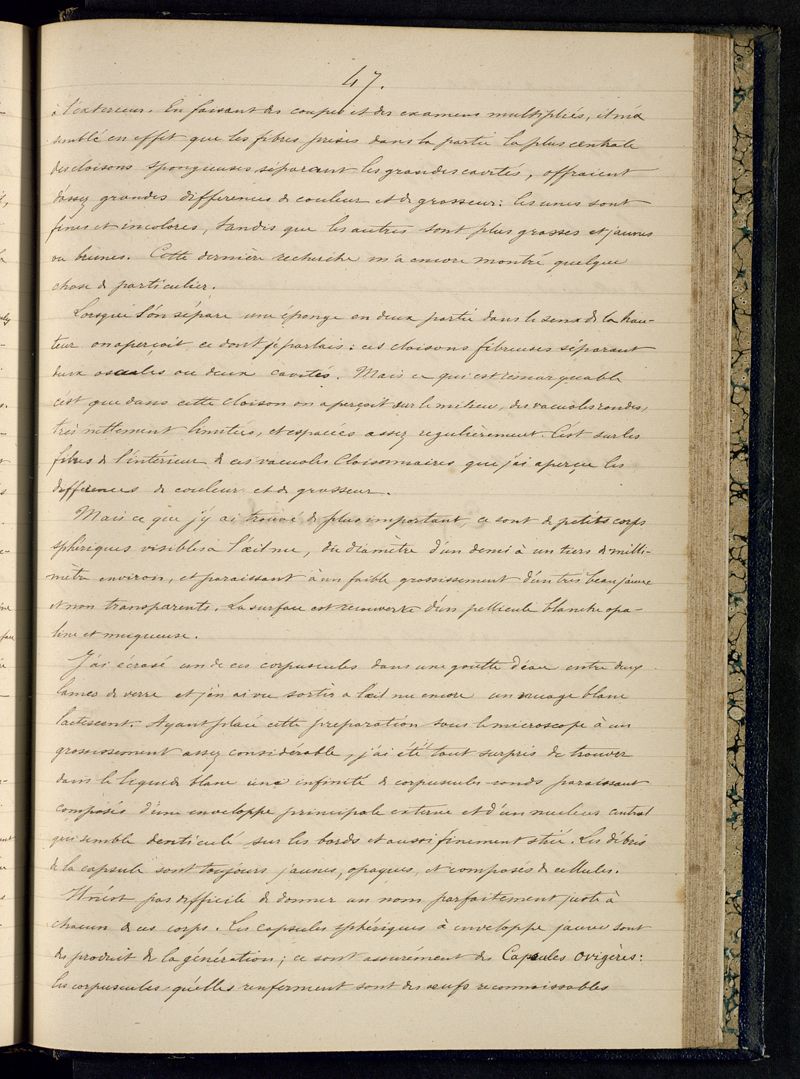 47.
à l'exterieur. En faisant des coupes et des examens multipliés, il m'a
semblé en effet que les fibres prises dans la partie la plus centrale
des cloisons spongieuses séparant les grandes cavités, offraient
d'assez grandes differences de couleur et de grosseur: les unes sont
fines et incolores, tandis que les autres sont plus grosses et jaunes
ou brunes. Cette dernière recherche m'a encore montré quelque
chose de particulier.
Lorsque l'on sépare une éponge en deux partie dans le sens de la hau-
teur on aperçoit ce dont je parlais: ces cloisons fibreuses séparant
deux oscules ou deux cavités. Mais ce qui est remarquable
c'est que dans cette cloison on aperçoit sur le milieu, des vacuoles rondes,
très nettement limitées, et espacées assez regulièrement. C'est sur les
fibres de l'intérieur de ces vacuoles cloisonnaires que j'ai aperçu les
differences de couleur et de grosseur.
Mais ce que j'y ai trouvé de plus important, ce sont de petits corps
sphériques visibles à l'œil nu, du diamètre d'un demi à un tiers de milli-
mètre environ, et paraissant à un faible grossissement d'un très beau jaune
et non transparents. La surface est recouverte d'un pellicule blanche opa-
line et muqueuse.
J'ai écrasé un de ces corpuscules dans une goutte d'eau entre deux
lames de verre et j'en ai vu sortir à l'œil nu encore un nuage blanc
lactescent. Ayant placé cette préparation sous le microscope à un
grossissement assez considérable, j'ai été tout surpris de trouver
dans le liquide blanc une infinité de corpuscules ronds paraissant
composés d'une enveloppe principale externe et d'un nucleus central
qui semble denticulé sur les bords et aussi finement strié. Les débris
de la capsule sont toujours jaunes, opaques, et composés de cellules.
Il n'est pas difficile de donner un nom parfaitement juste à
chacun de ces corps. Les capsules sphériques à enveloppe jaune sont
des produit de la génération; ce sont assurément des Capsules ovigères:
les corpuscules qu'elles renferment sont des œufs reconnaissables